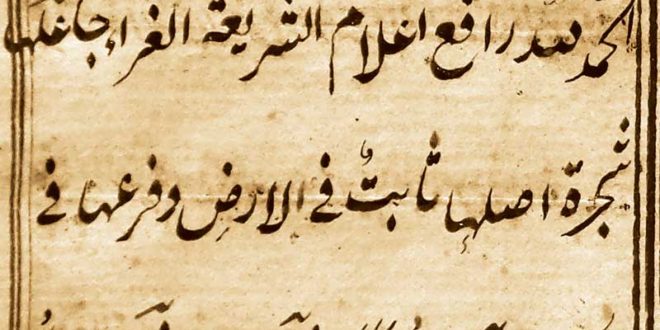 الحمد لله رافع اعلام الشريعة الغراء جاعلها
شجرة اصلها ثابتٌ في الارضِ وفرعها في